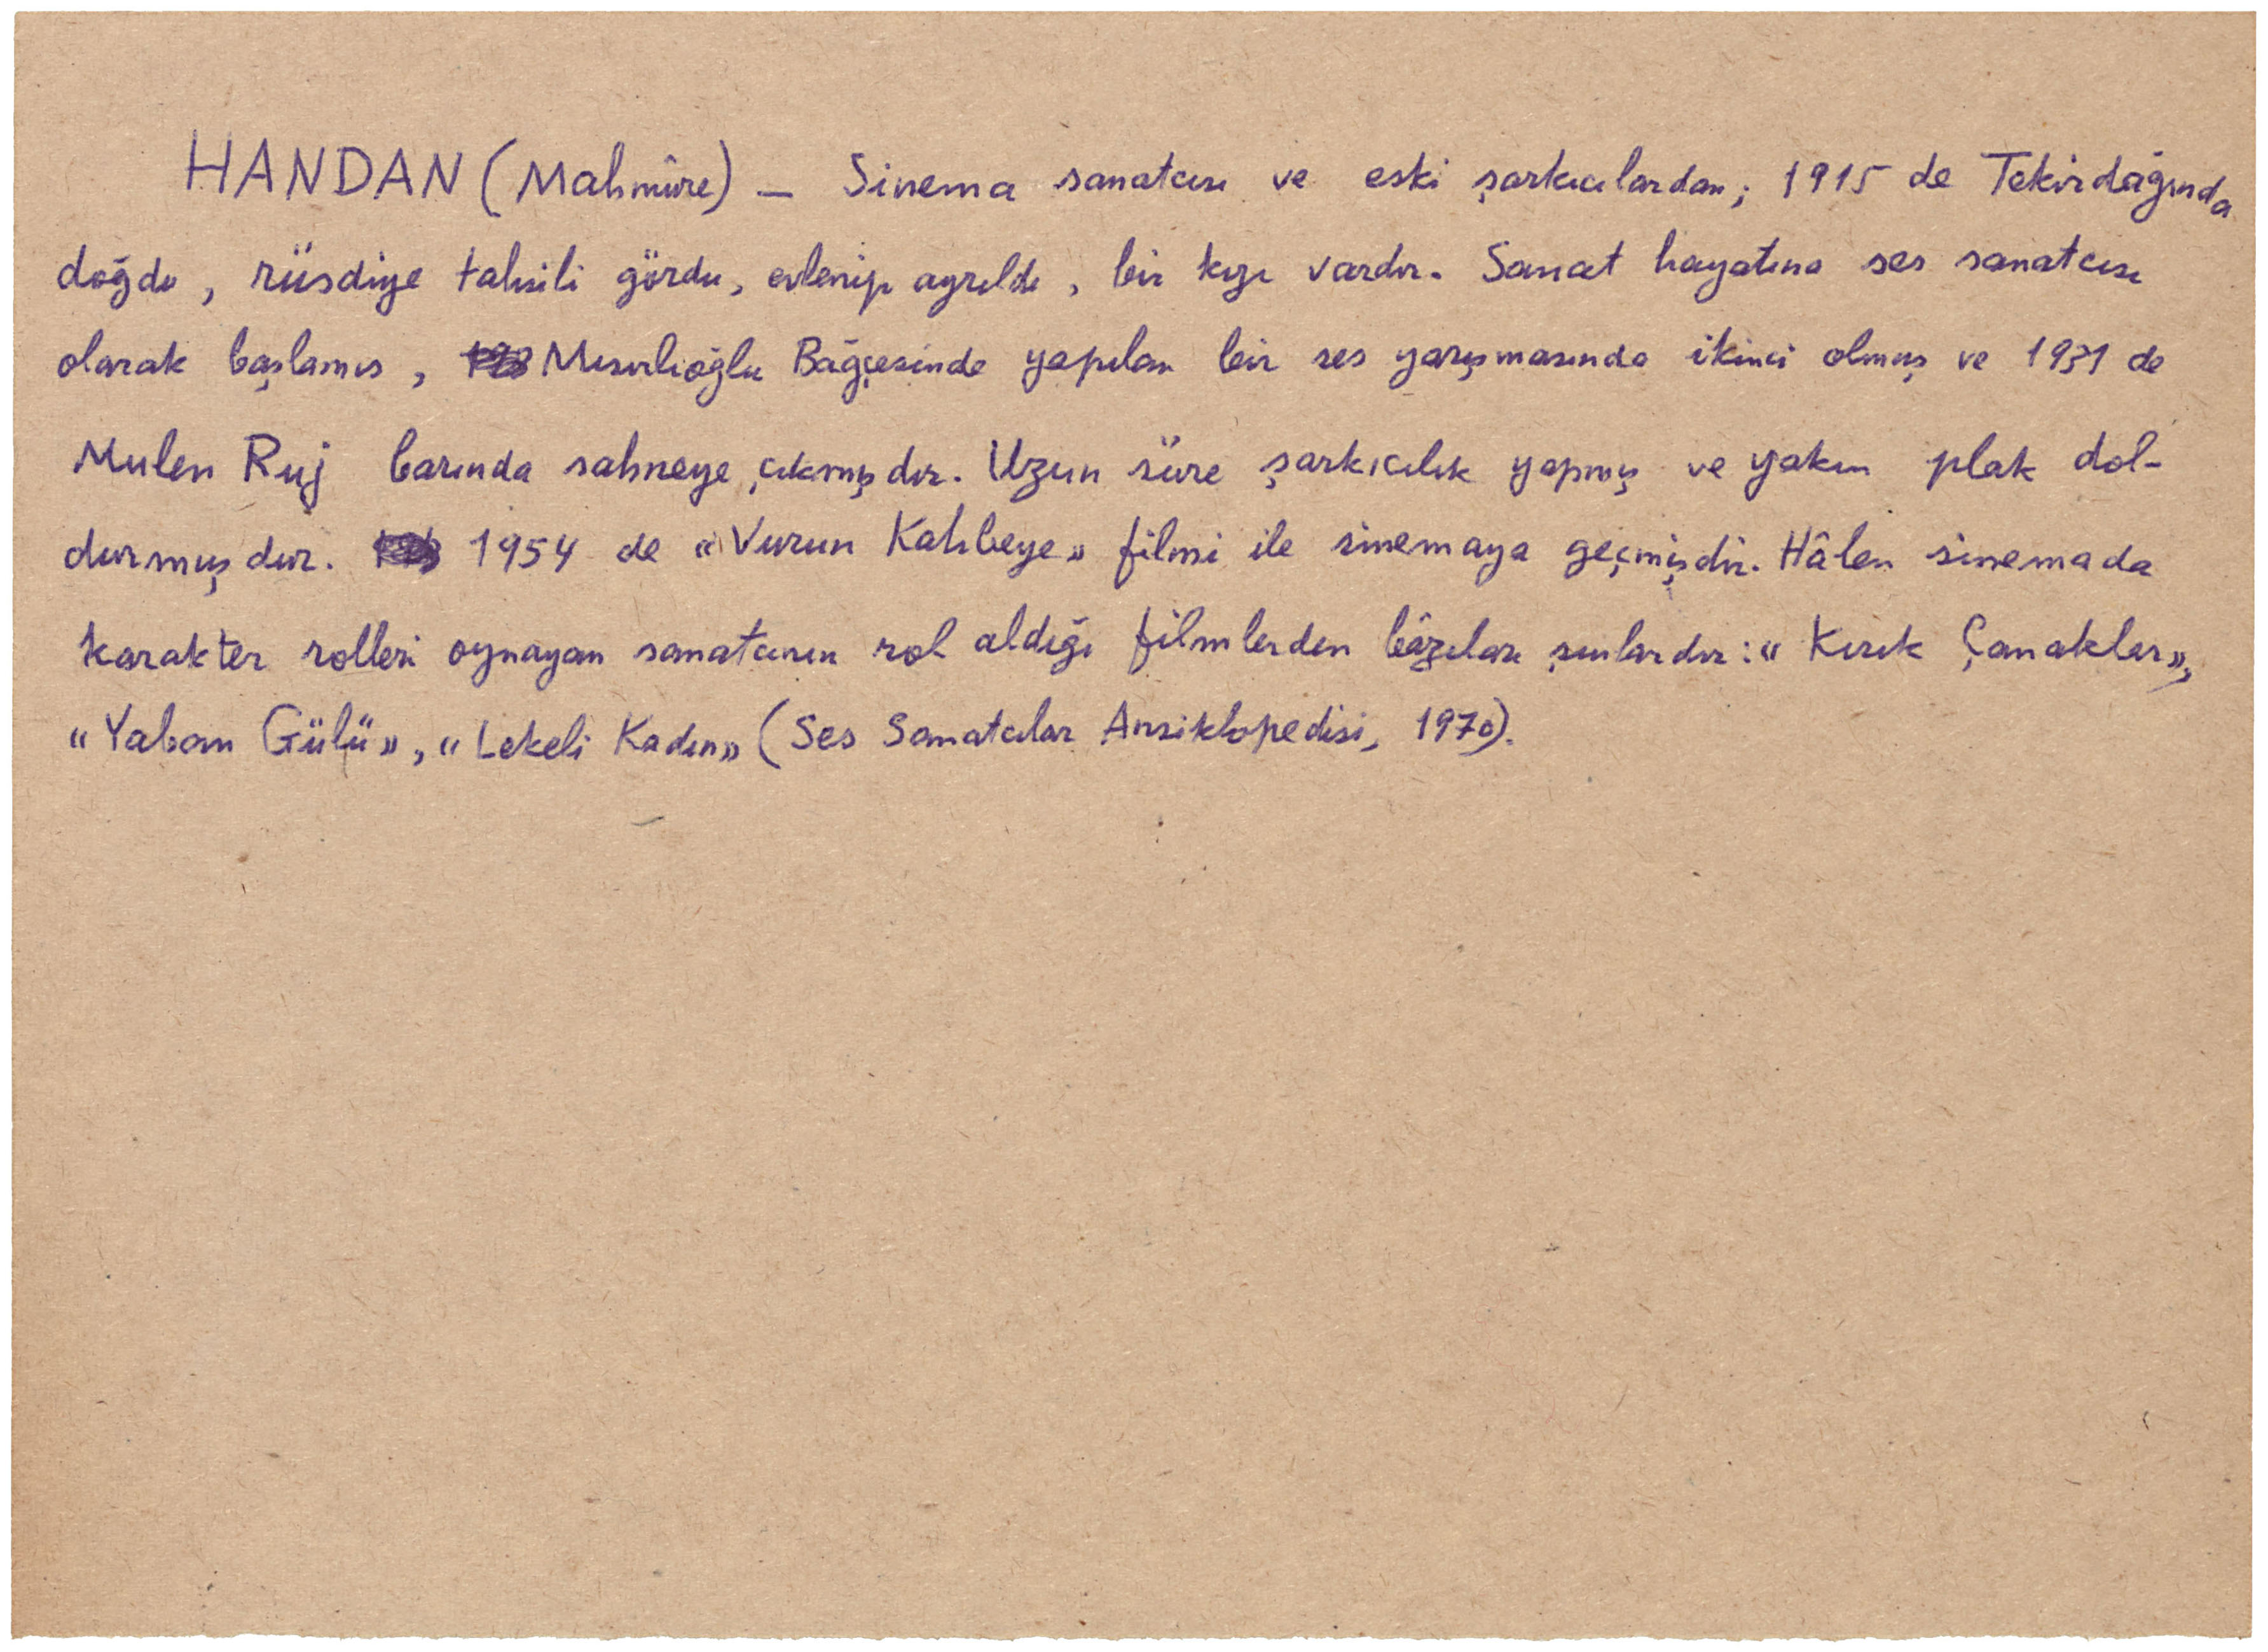 HANDAN (Mahmûre) — Sinema sanatcısı ve eski şarkıcılardan; 1915 de Tekirdağında
doğdu, rüsdiye tahsili gördu, evlenip ayrıldı, bir kızı vardır. Sanat hayatına ses sanatcısı
olarak başlamıs, Mısırlıoğlu Bağçesinde yapılan bir ses yarışmasında ikinci olmuş ve 1931 de
Mulen Ruj barında sahneye çıkmışdır. Uzun süre şarkıcılık yapmış ve yakın plak dol-
durmuşdur. 1954 de «Vurun Kahbeye» filmi ile sinemaya geçmişdir. Hâlen sinemada
karakter rolleri oynayan sanatcının rol aldığı filmlerden bâzıları şunlardır: «Kırık Çanaklar»,
«Yaban Gülü», «Lekeli Kadın» (Ses Sanatcılar Ansiklopedisi, 1970).